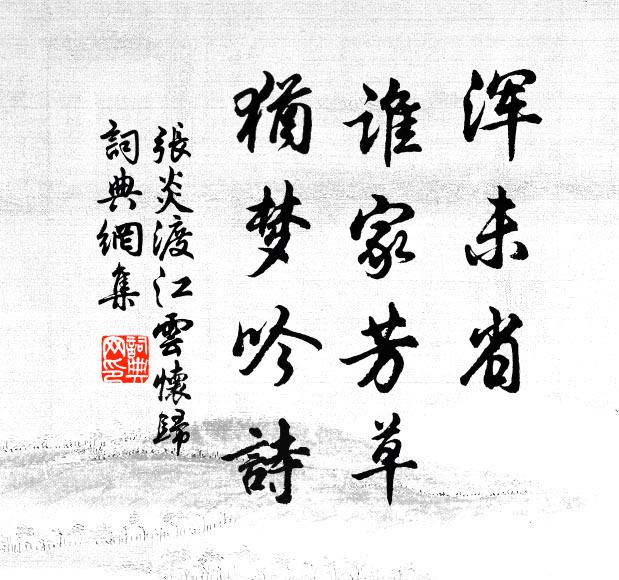 浑未省
谁家芳草
猶梦吟詩
張炎渡江雲懷歸
詞典網集
詞典
网印